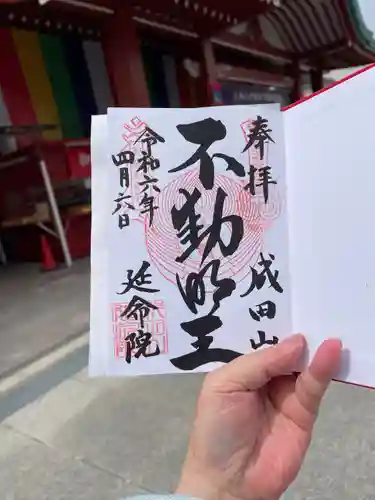 奉拝
成田山
不動明王
令和六年
四月六日
延命院